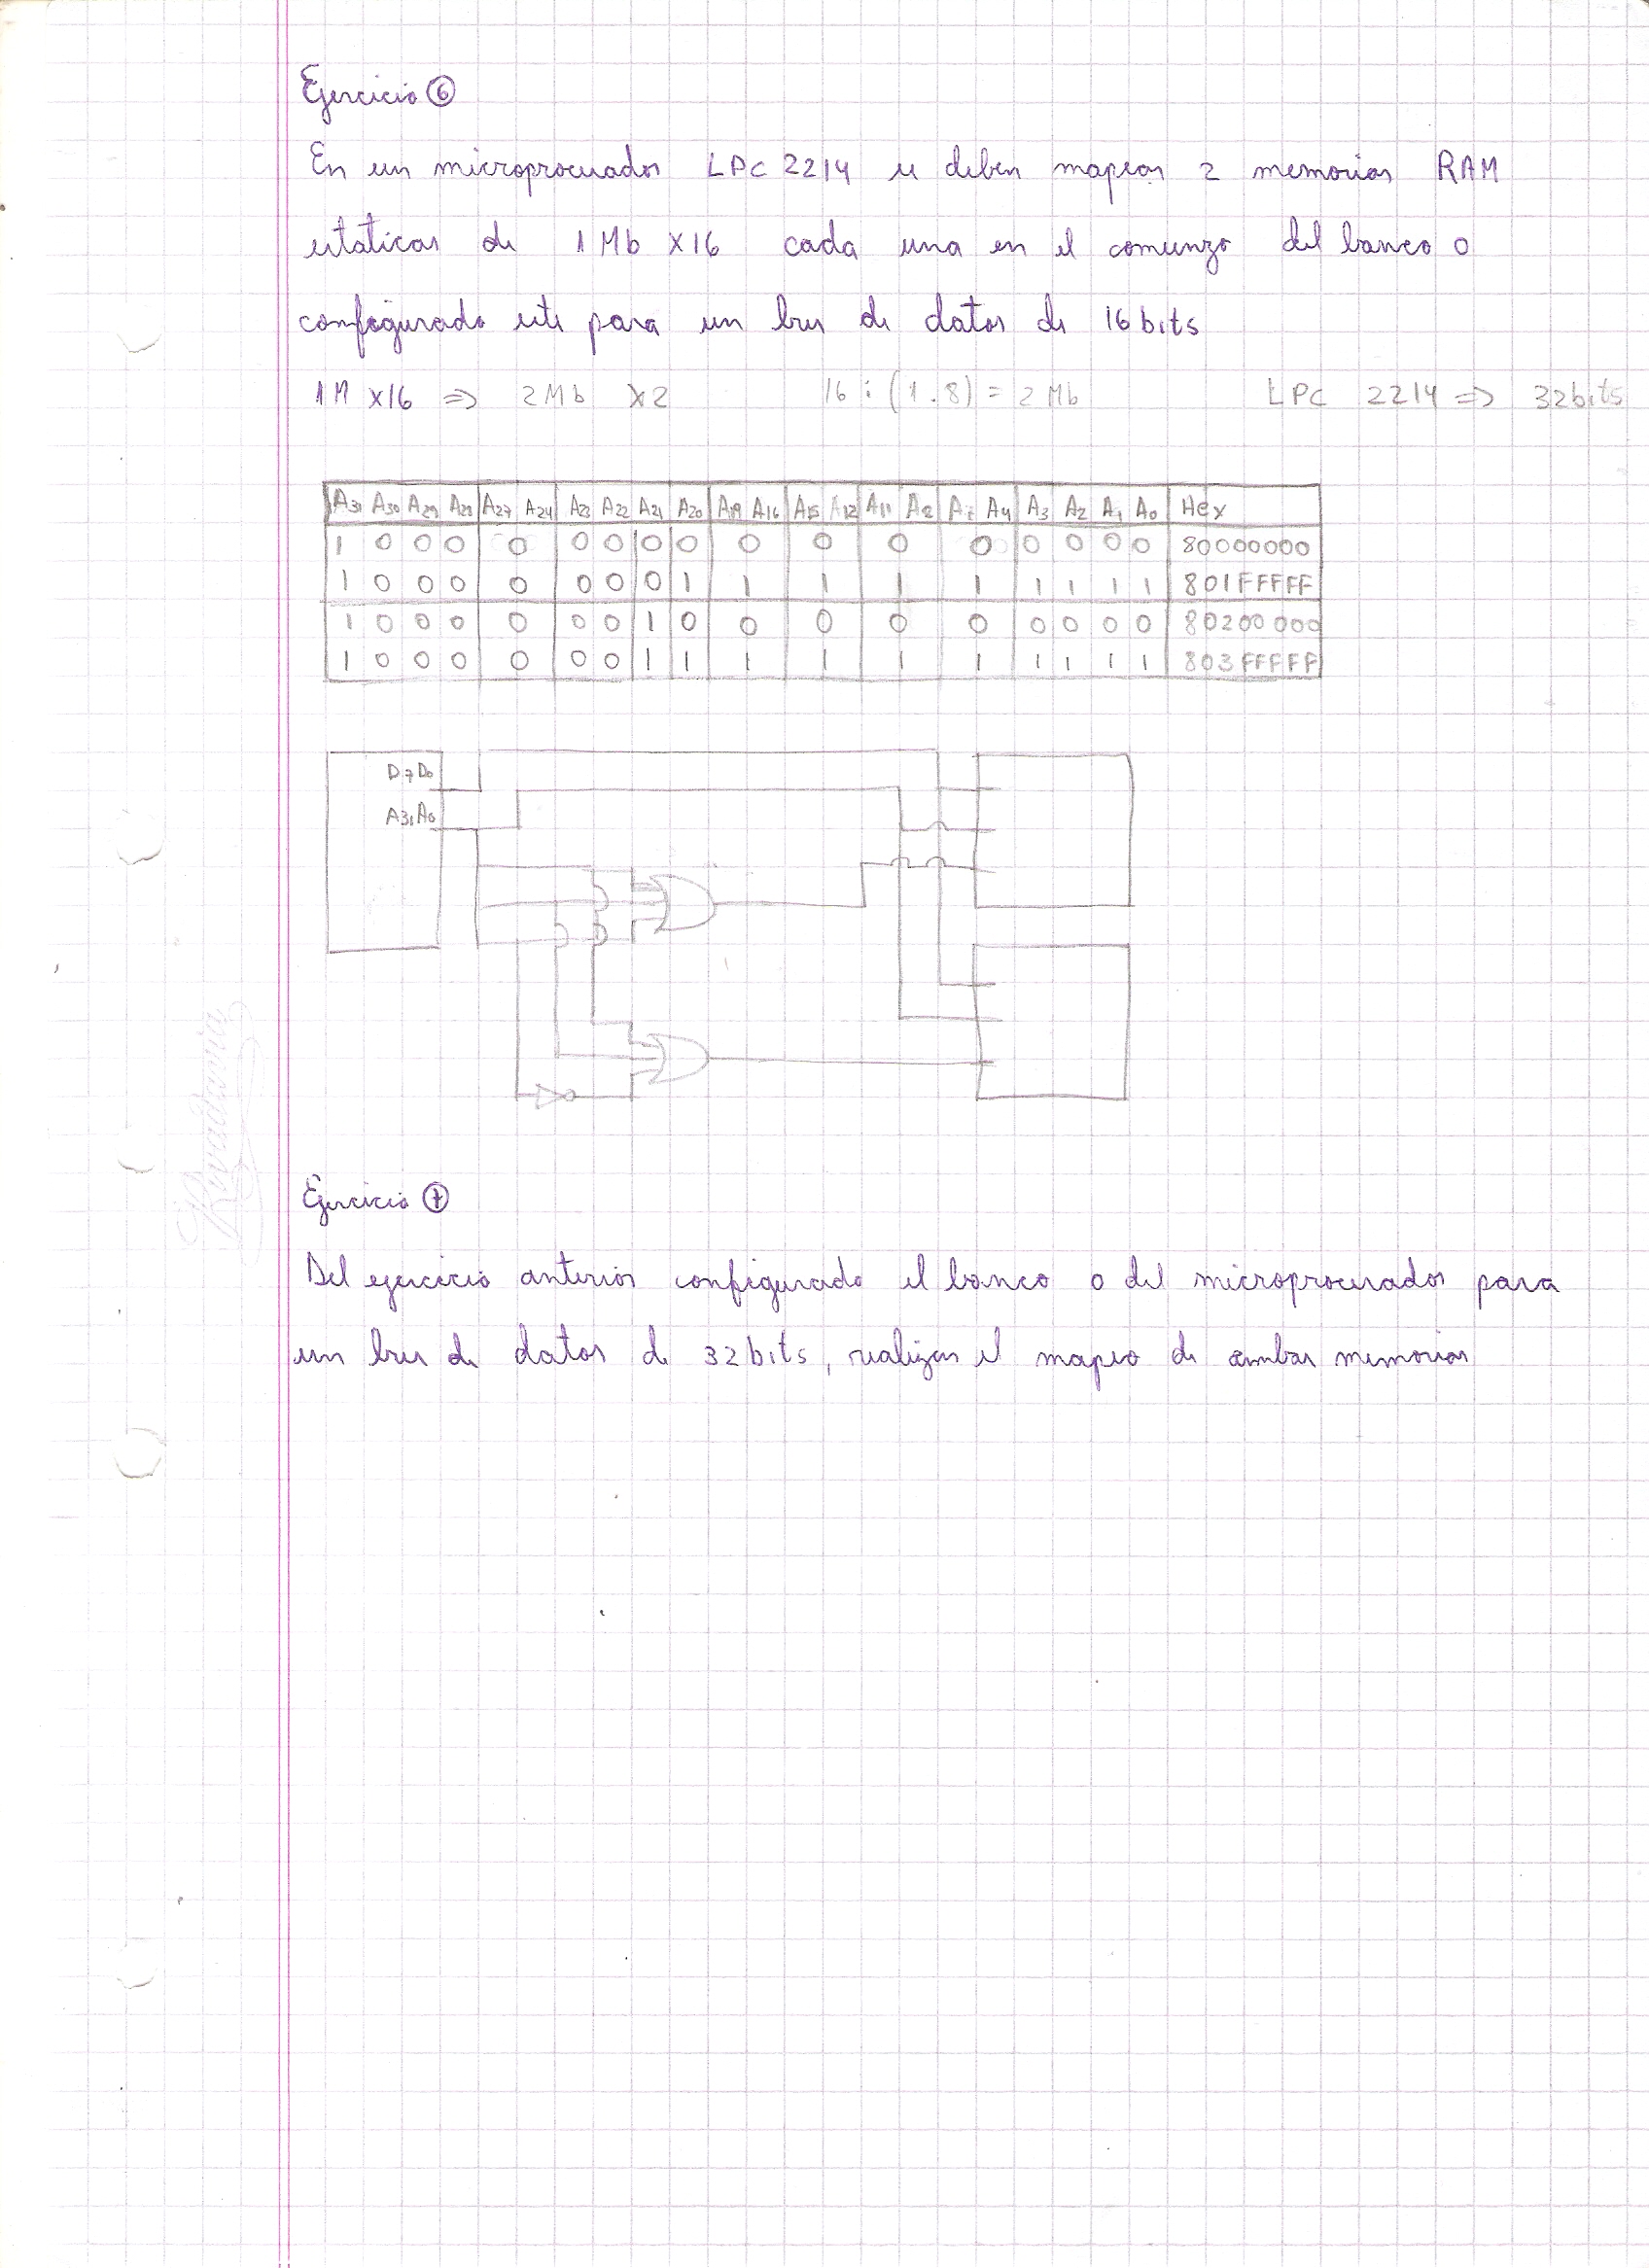 Ejercicio 6
En un microprocesador LPC 2214 se deben mapear 2 memorias RAM
estaticas de 1 Mb x16 cada una en el comienzo del banco 0
configurado este para un bus de datos de 16 bits
1M x16 => 2Mb x2 16 : (1.8) = 2 Mb LPC 2214 => 32bits
A31 A30 A29 A28 A27 A24 A23 A22 A21 A20 A19 A16 A15 A12 A11 A8 A7 A4 A3 A2 A1 A0 Hex
1 0 0 0 0 0 0 0 0 0 0 0 0 0 0 0 0 80000000
1 0 0 0 0 0 0 0 1 1 1 1 1 1 1 1 1 801FFFFF
1 0 0 0 0 0 0 1 0 0 0 0 0 0 0 0 0 80200000
1 0 0 0 0 0 0 1 1 1 1 1 1 1 1 1 1 803FFFFF
D7D0
A31A0
Rivadavia
Ejercicio 7
Del ejercicio anterior configurado el banco 0 del microprocesador para
un bus de datos de 32bits, realizar el mapeo de ambas memorias